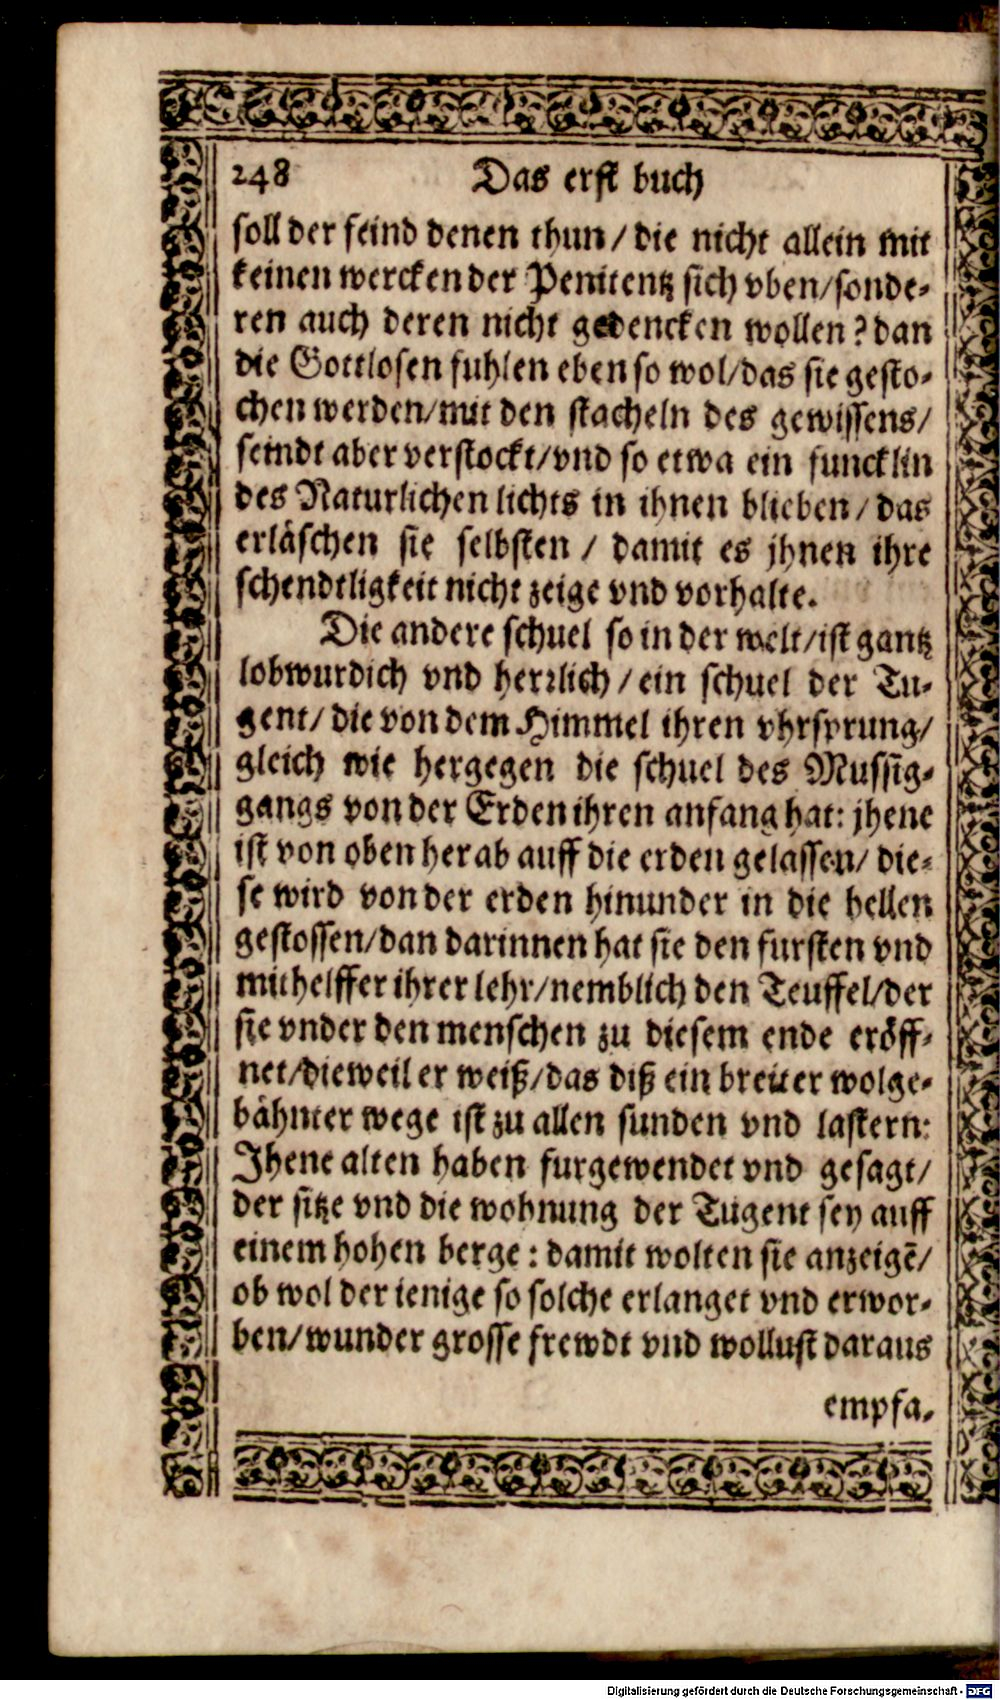 248 Das erst buch
soll der feind denen thun / die nicht allein mit
keinen wercken der Penitentz sich vben / sonde-
ren auch deren nicht gedencken wollen? dan
die Gottlosen fuhlen eben so wol / das sie gesto-
chen werden / mit den stacheln des gewissens /
seindt aber verstockt / vnd so etwa ein funcklin
des Naturlichen lichts in ihnen blieben / das
erläschen sie selbsten / damit es jhnen ihre
schendtligkeit nicht zeige vnd vorhalte.
Die andere schuel so in der welt / ist gantz
lobwurdich vnd herrlich / ein schuel der Tu-
gent / die von dem Himmel ihren vhrsprung /
gleich wie hergegen die schuel des Mussig-
gangs von der Erden ihren anfang hat: jhene
ist von oben herab auff die erden gelassen / die-
se wird von der erden hinunder in die hellen
gestossen / dan darinnen hat sie den fursten vnd
mithelffer ihrer lehr / nemblich den Teuffel / der
sie vnder den menschen zu diesem ende eröff-
net / dieweil er weiß / das diß ein breiter wolge-
bähnter wege ist zu allen sunden vnd lastern:
Jhene alten haben furgewendet vnd gesagt /
der sitze vnd die wohnung der Tugent sey auff
einem hohen berge: damit wolten sie anzeigē /
ob wol der ienige so solche erlanget vnd erwor-
ben / wunder grosse frewdt vnd wollust daraus
empfa-
Digitalisierung gefördert durch die Deutsche Forschungsgemeinschaft - DFG